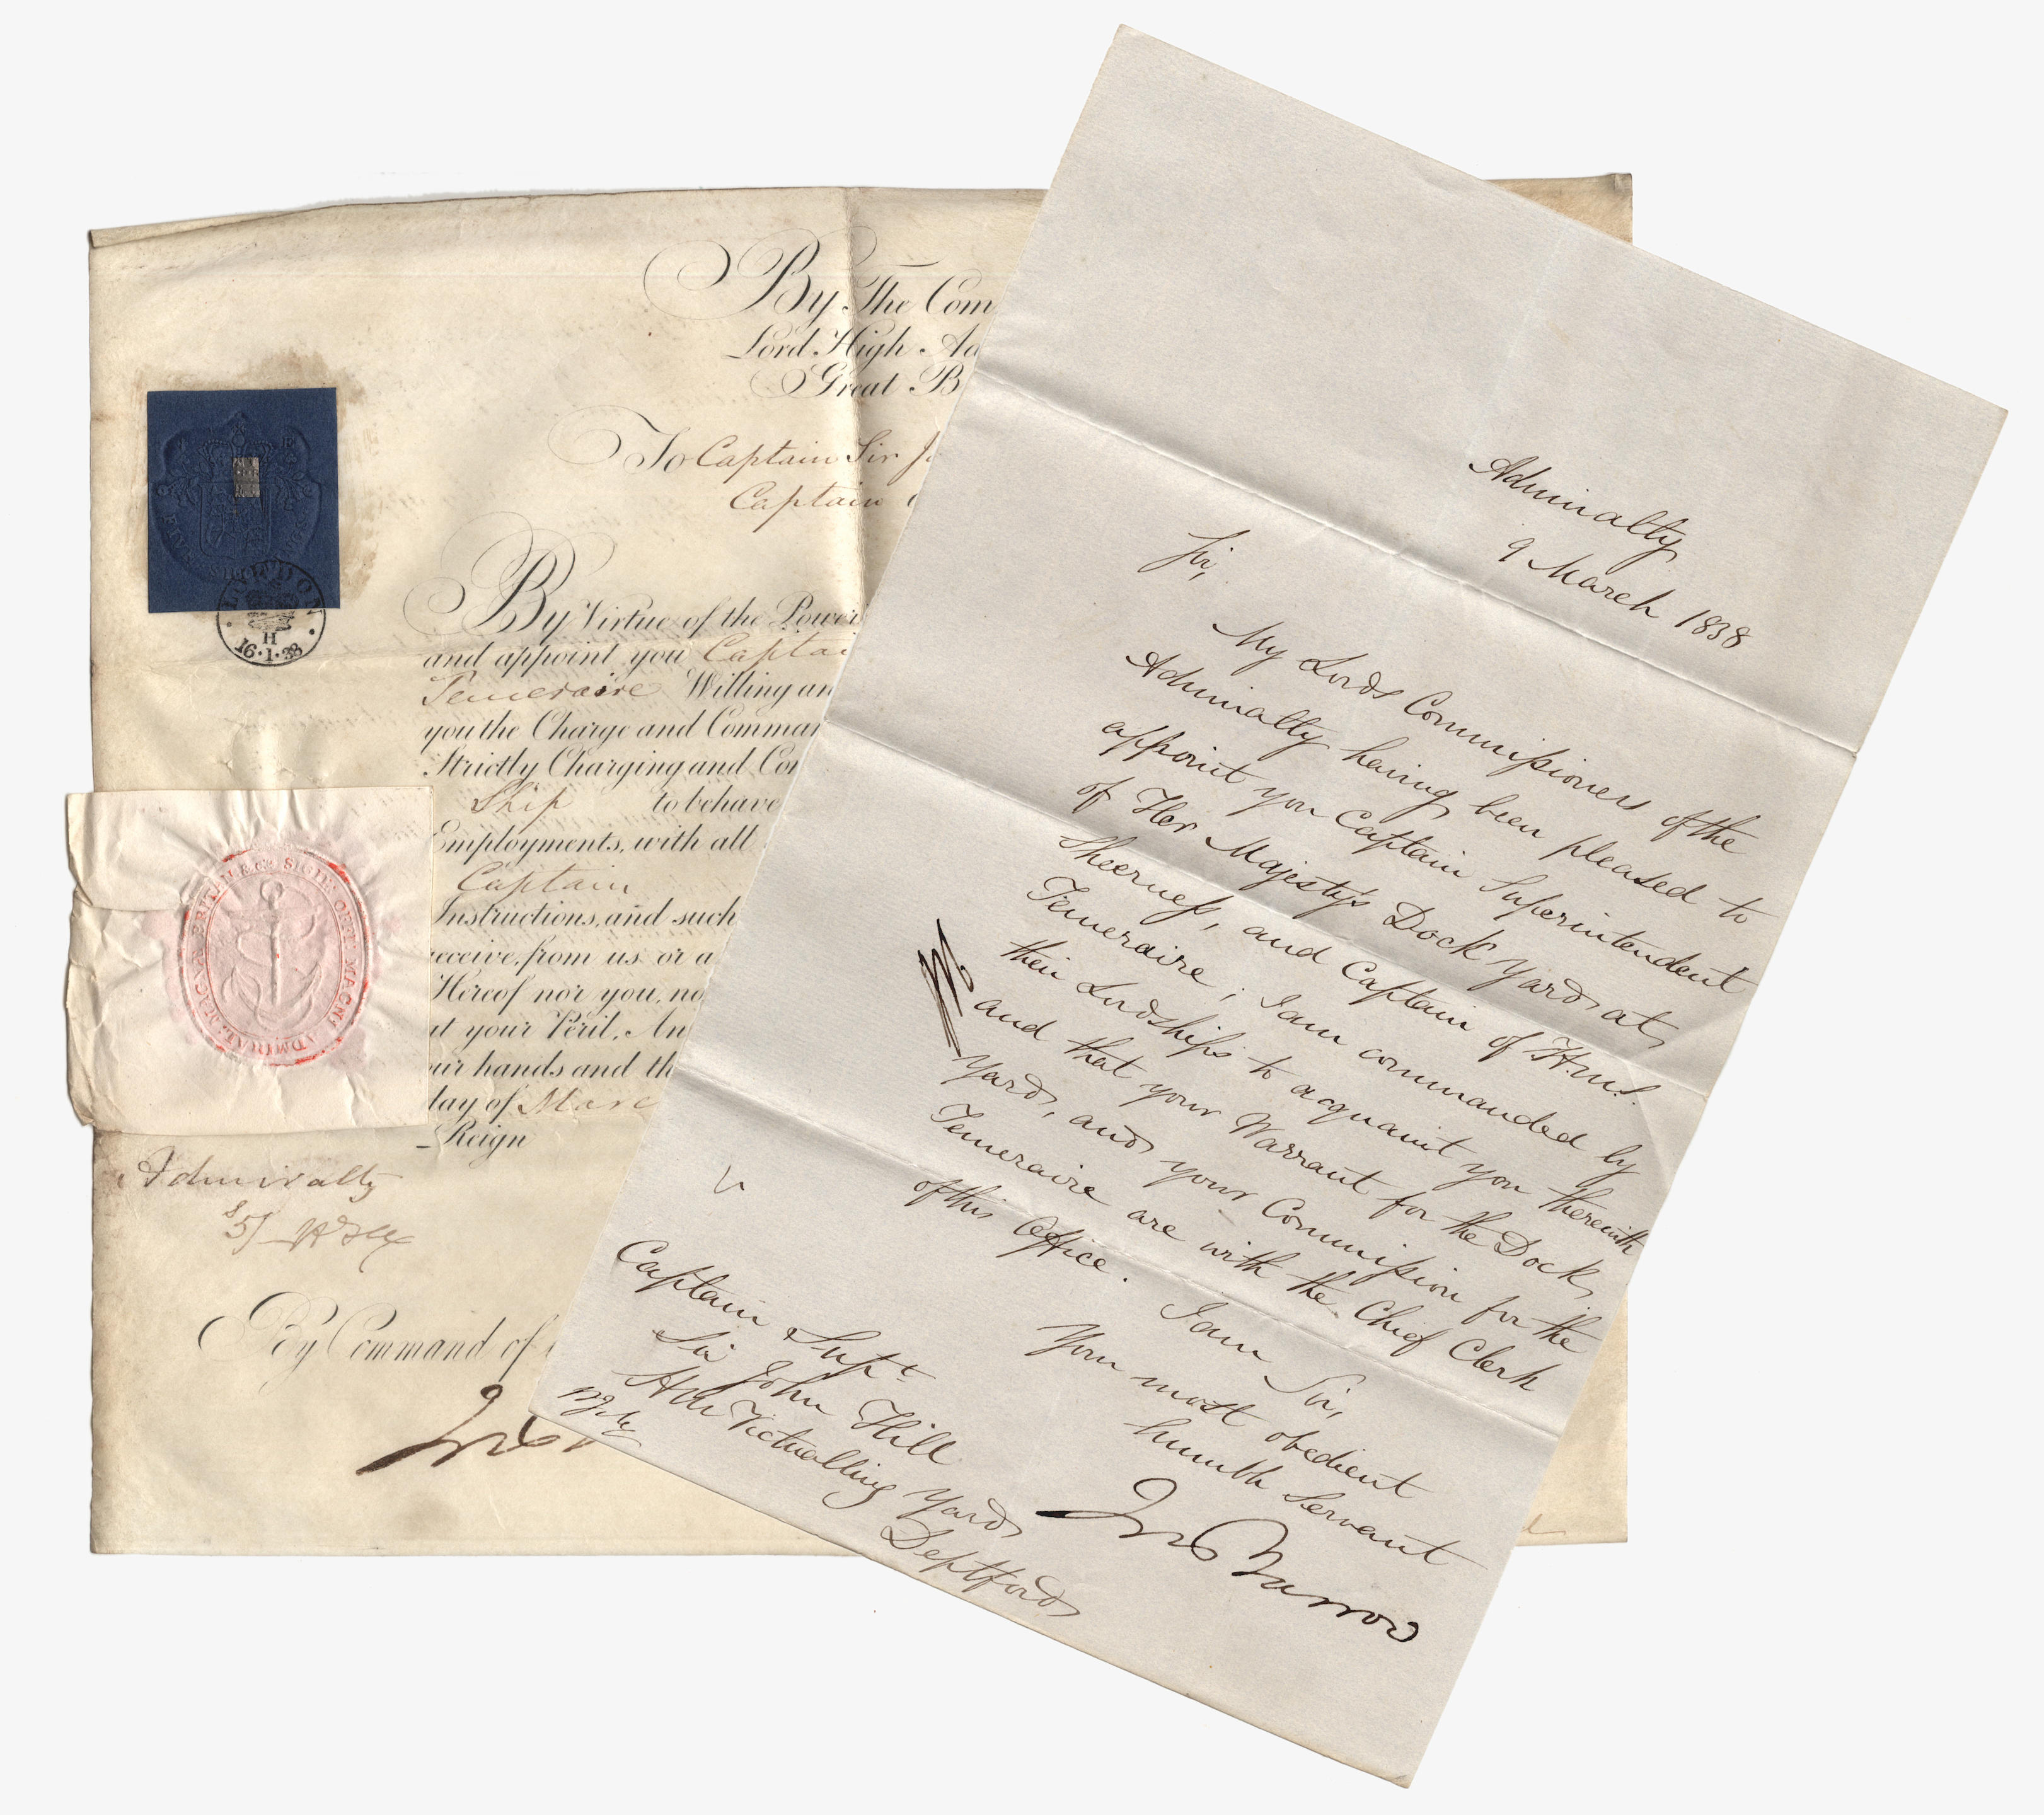 By The Com
Lord High Ad
Great B
To Captain Sir J
Captain
FIVE SHIL
LONDON
H
16·1·38
By Virtue of the Power
and appoint you Captai
Temeraire Willing an
you the Charge and Comman
Strictly Charging and Com
Ship to behave
Employments, with all
Captain
Instructions, and such
receive from us or a
Hereof nor you, no
at your Peril, An
our hands and th
day of Marc
Reign
SIGILL. OFF. MAGNI ADMIRAL. MAGNÆ BRITANNIÆ &c.
Admiralty
By Command of
Admiralty
9 March 1838
Sir,
My Lords Commissioners of the
Admiralty having been pleased to
appoint you Captain Superintendent
of Her Majesty's Dock Yard at
Sheerness, and Captain of H.M.S.
Temeraire; I am commanded by
their Lordships to acquaint you therewith
and that your Warrant for the Dock
Yard, and your Commission for the
Temeraire are with the Chief Clerk
of this Office.
I am Sir,
Your most obedient
humble Servant
Jno Barrow
Captain Supt
Sir John Hill
HM Victualling Yard
Deptford